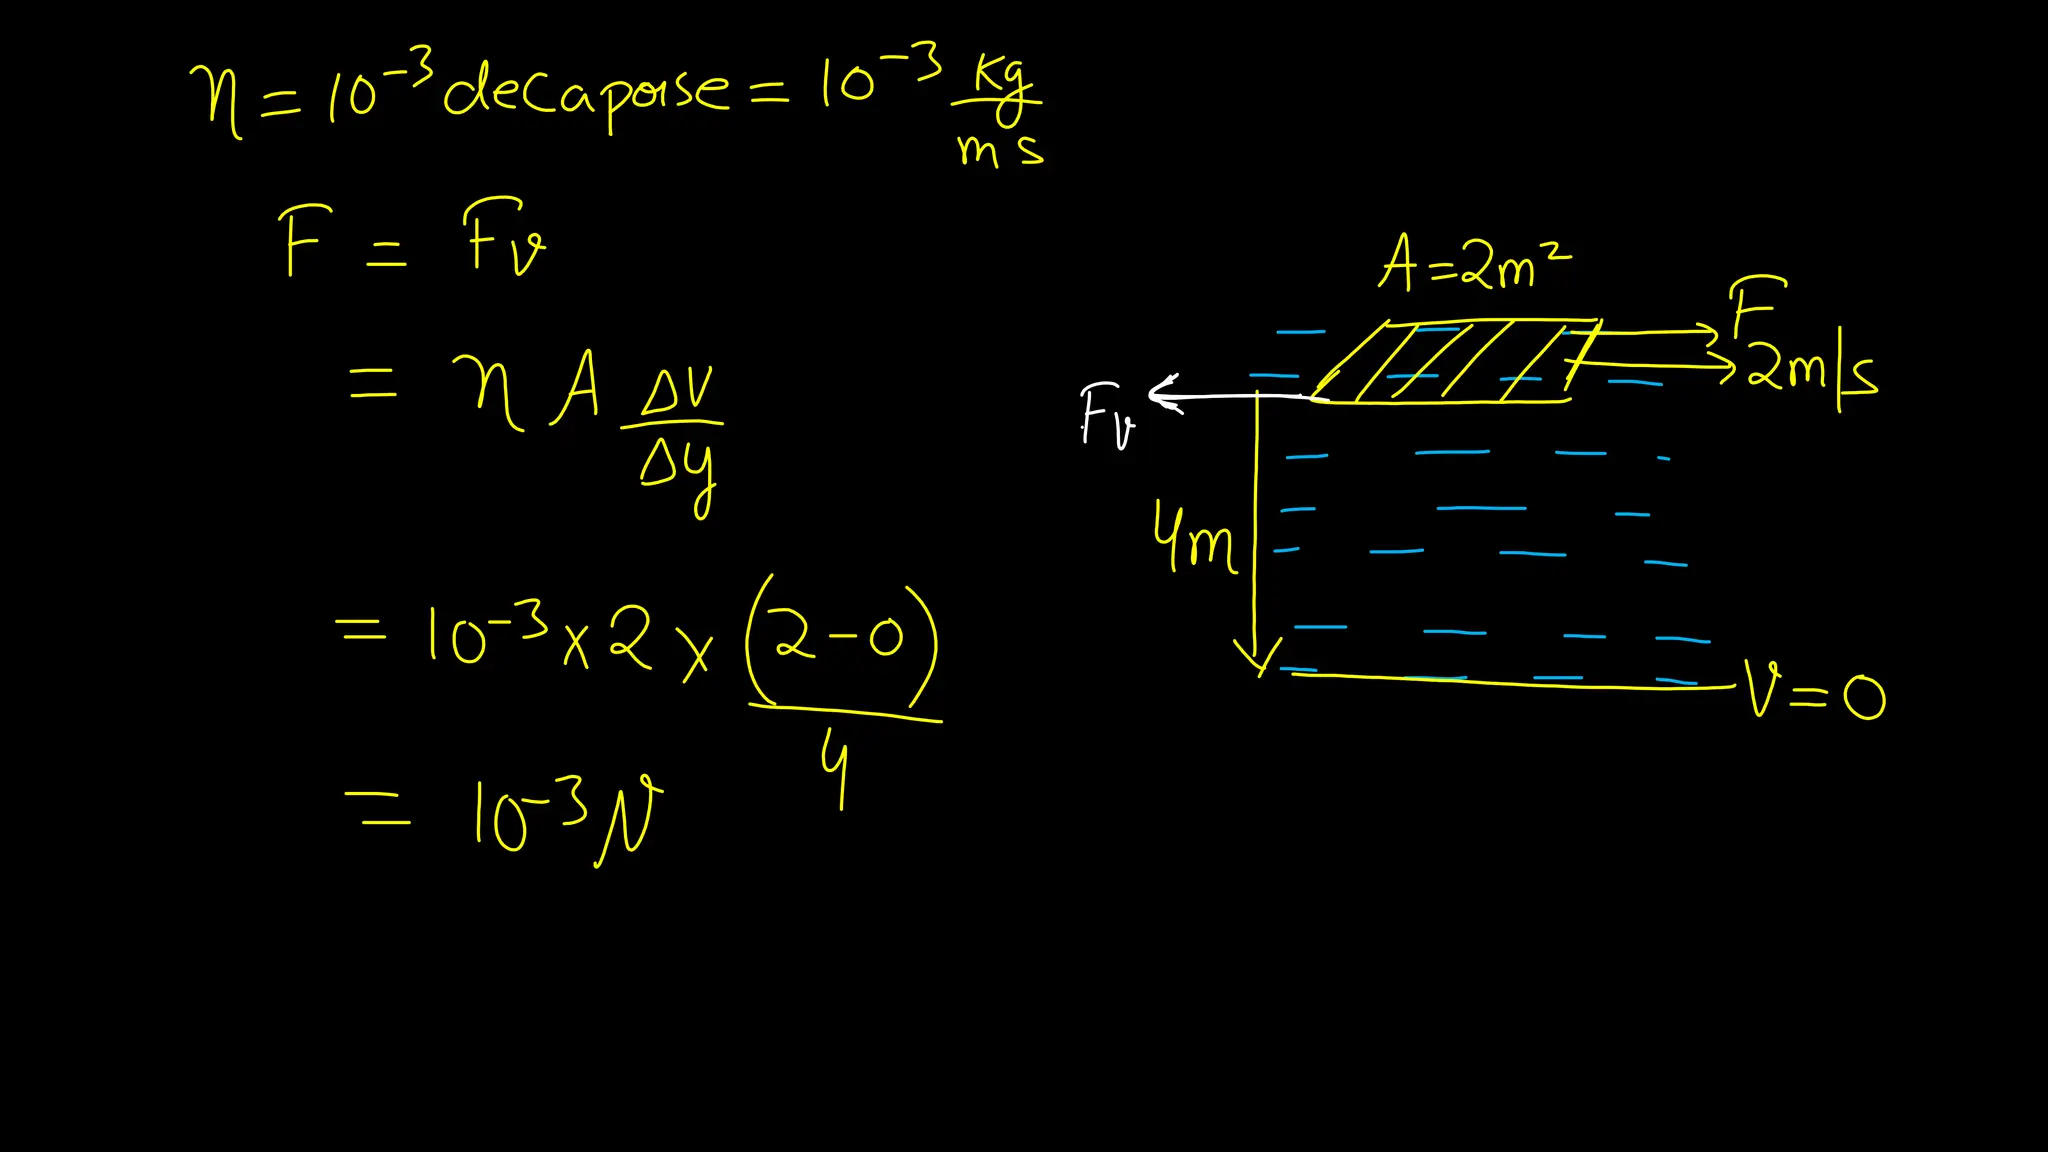 η = 10⁻³ decapoise = 10⁻³ kg/ms
F = Fv
= η A Δv/Δy
= 10⁻³ x 2 x (2-0)/4
= 10⁻³ N
A = 2m²
F
2m/s
Fv
4m
V = 0